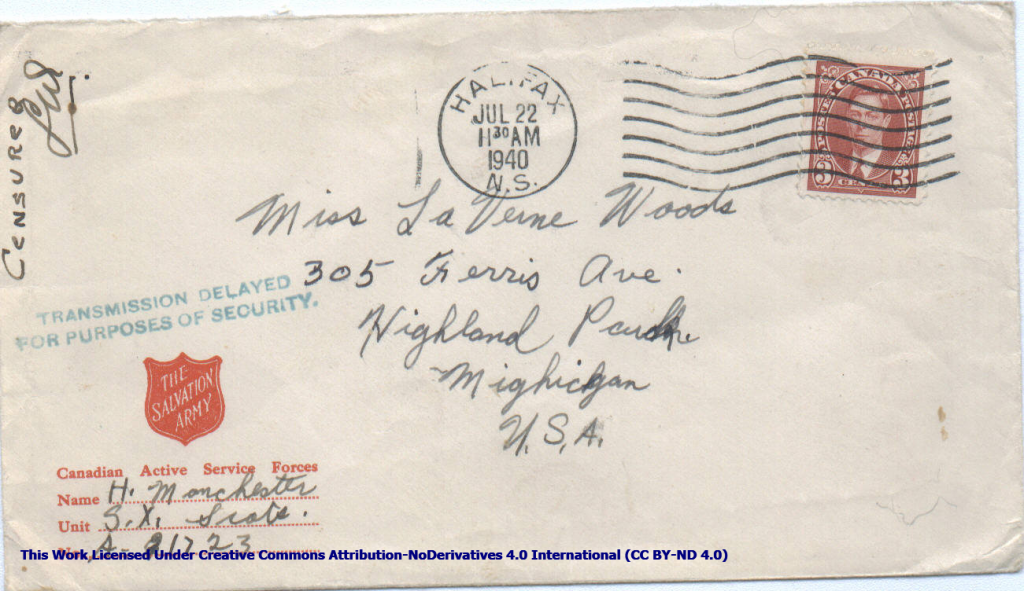 CENSURED
HALIFAX
JUL 22
11 30 AM
1940
N.S.
POSTES CANADA POSTAGE
3 3
Miss LaVerne Woods
305 Ferris Ave.
Highland Park
Mighichgan
U.S.A.
TRANSMISSION DELAYED
FOR PURPOSES OF SECURITY.
THE
SALVATION
ARMY
Canadian Active Service Forces
Name H. Manchester
Unit S.X. Scots.
A-21723
This Work Licensed Under Creative Commons Attribution-NoDerivatives 4.0 International (CC BY-ND 4.0)